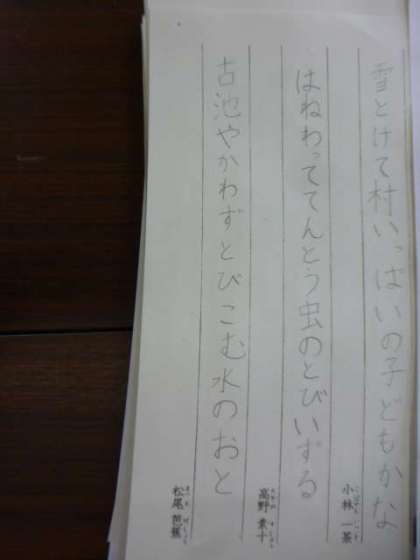 雪とけて村いっぱいの子どもかな
小林 一茶
はねわっててんとう虫のとびいずる
高野 素十
古池やかわずとびこむ水のおと
松尾 芭蕉